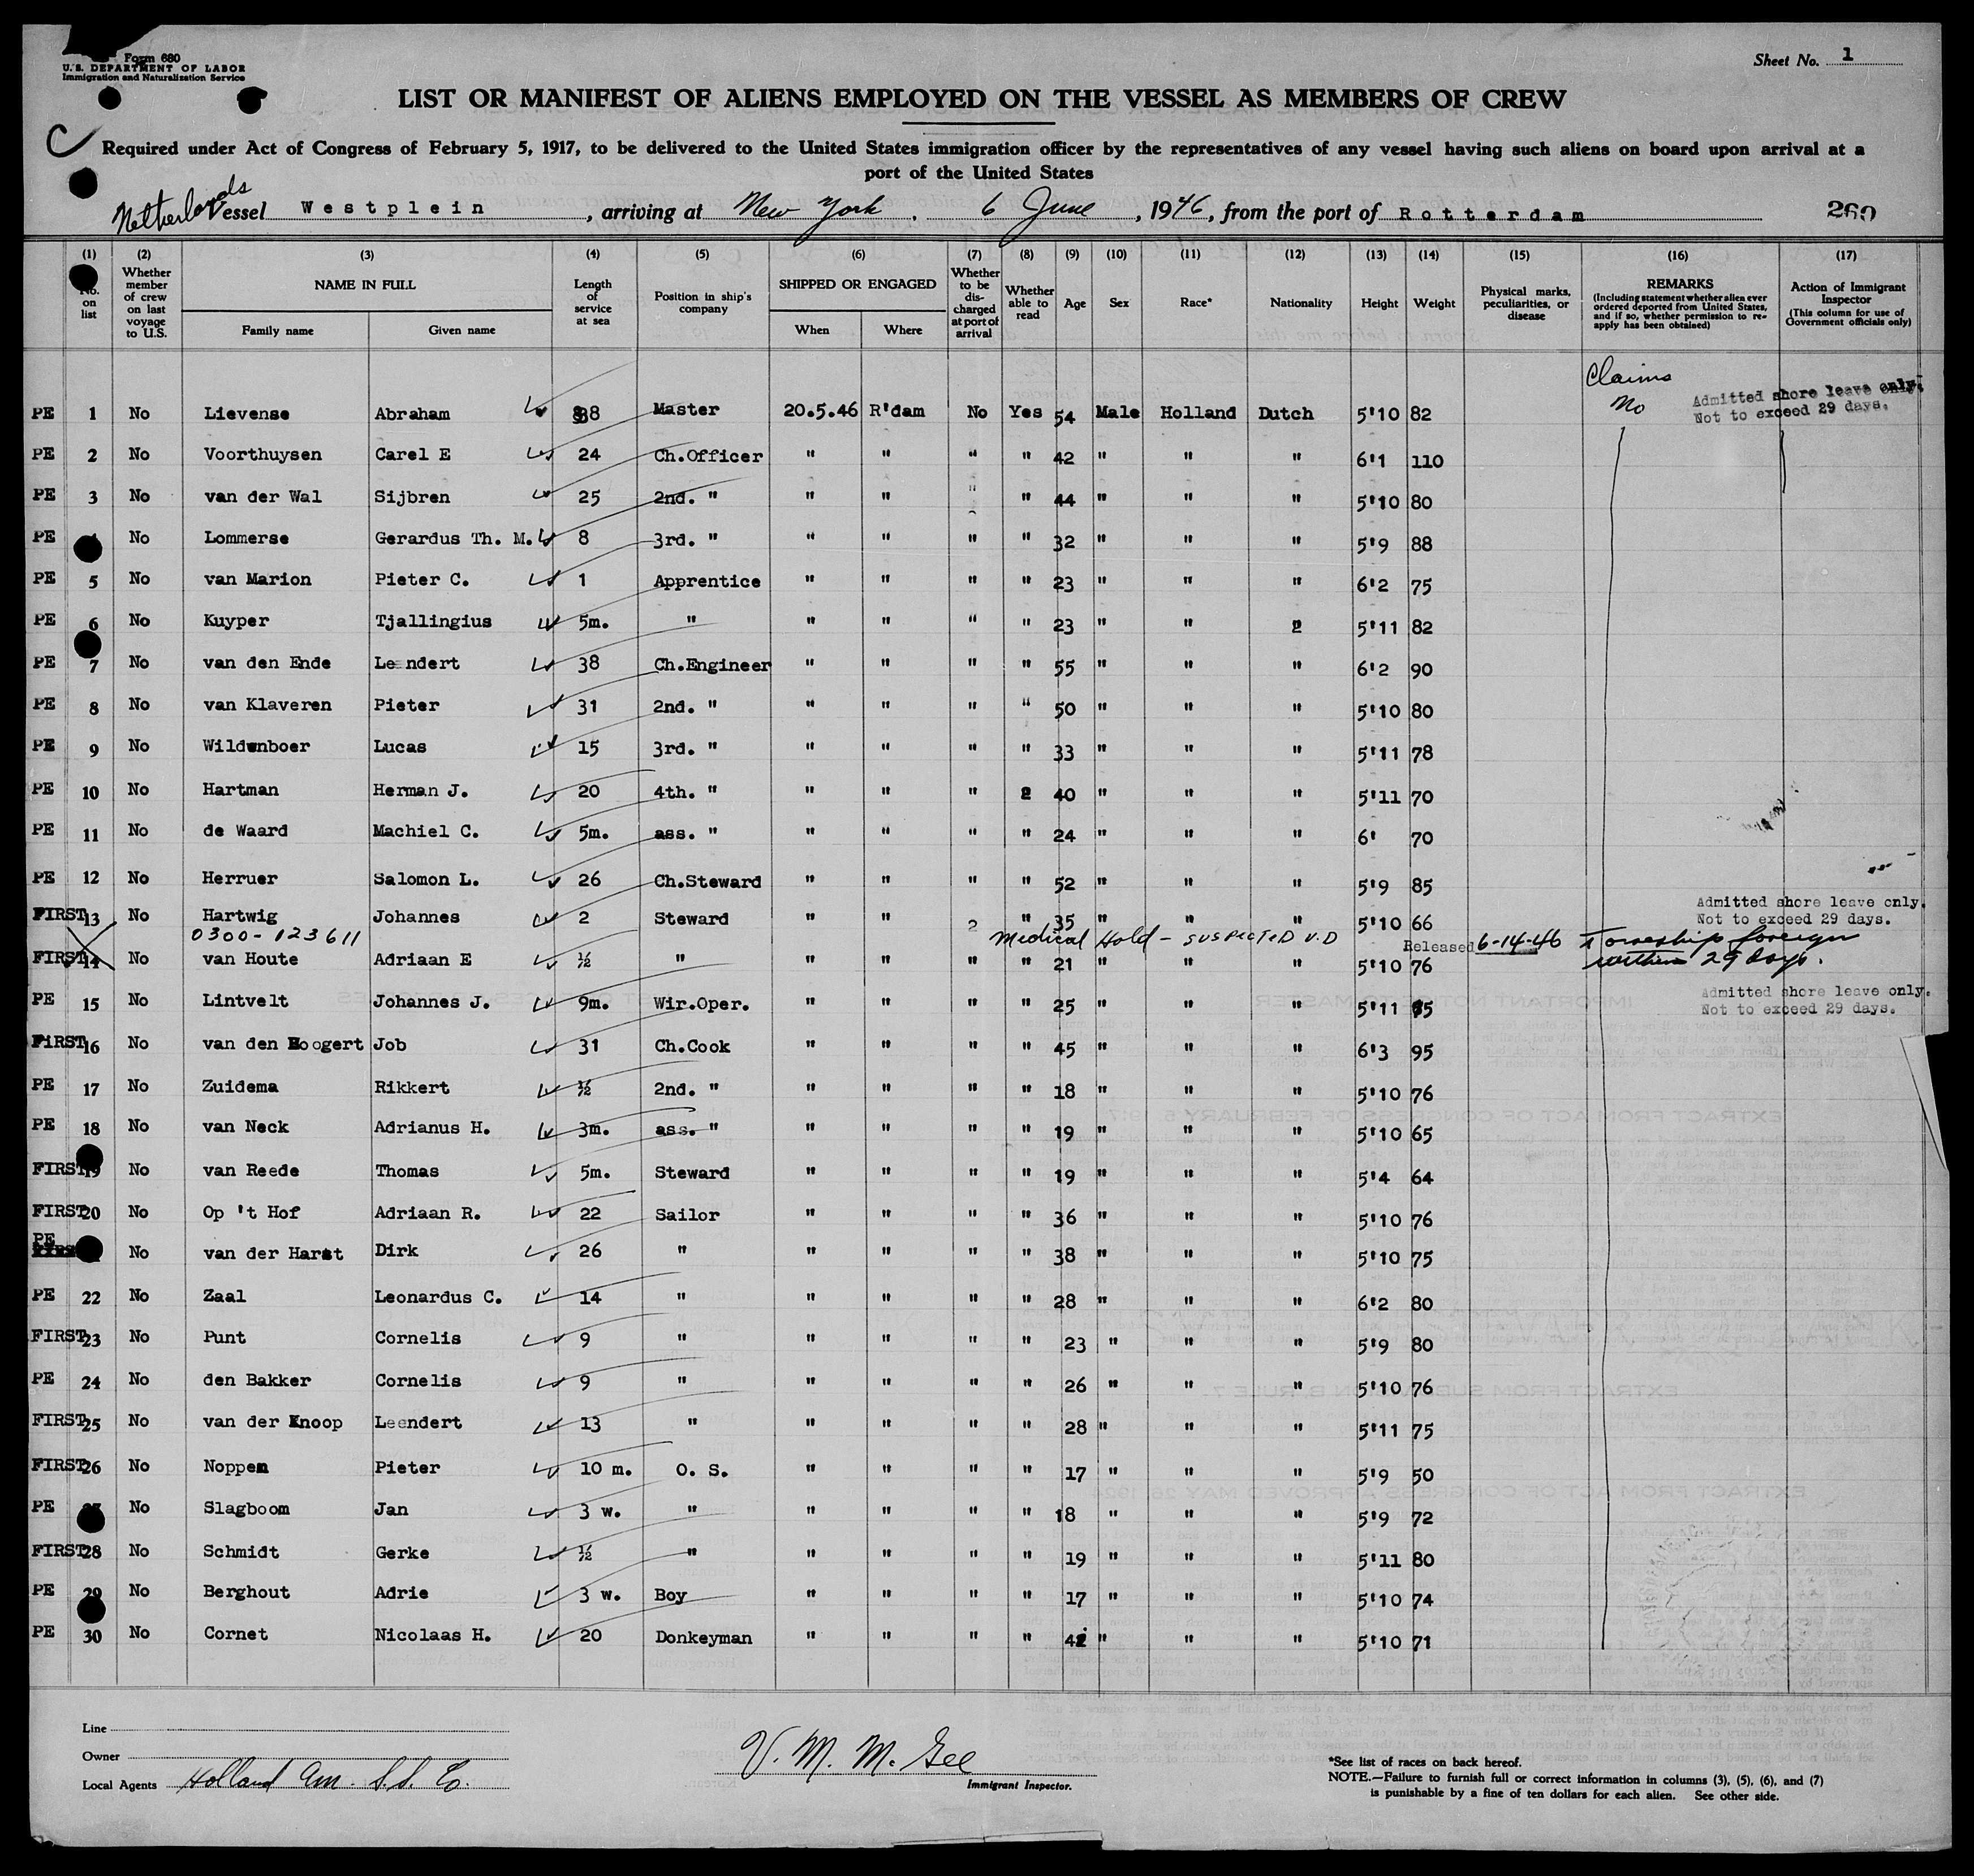 Form 680
U. S. DEPARTMENT OF LABOR
Immigration and Naturalization Service
Sheet No. 1
LIST OR MANIFEST OF ALIENS EMPLOYED ON THE VESSEL AS MEMBERS OF CREW
Required under Act of Congress of February 5, 1917, to be delivered to the United States immigration officer by the representatives of any vessel having such aliens on board upon arrival at a
port of the United States
Netherlands Vessel Westplein, arriving at New York, 6 June, 1946, from the port of Rotterdam 260
(1) (2) (3) (4) (5) (6) (7) (8) (9) (10) (11) (12) (13) (14) (15) (16) (17)
No. on list Whether member of crew on last voyage to U.S. NAME IN FULL Family name Given name Length of service at sea Position in ship's company SHIPPED OR ENGAGED When Where Whether to be discharged at port of arrival Whether able to read Age Sex Race* Nationality Height Weight Physical marks, peculiarities, or disease REMARKS (Including statement whether alien ever ordered deported from United States, and if so, whether permission to reapply has been obtained) Action of Immigrant Inspector (This column for use of Government officials only)
Claims
PE 1 No Lievense Abraham 38 Master 20.5.46 R'dam No Yes 54 Male Holland Dutch 5'10 82 No Admitted shore leave only. Not to exceed 29 days.
PE 2 No Voorthuysen Carel E 24 Ch.Officer " " " " 42 " " " 6'1 110
PE 3 No van der Wal Sijbren 25 2nd. " " " " " 44 " " " 5'10 80
PE No Lommerse Gerardus Th. M. 8 3rd. " " " " " 32 " " " 5'9 88
PE 5 No van Marion Pieter C. 1 Apprentice " " " " 23 " " " 6'2 75
PE 6 No Kuyper Tjallingius 5m. " " " " " 23 " " 2 5'11 82
PE 7 No van den Ende Leendert 38 Ch.Engineer " " " " 55 " " " 6'2 90
PE 8 No van Klaveren Pieter 31 2nd. " " " " " 50 " " " 5'10 80
PE 9 No Wildenboer Lucas 15 3rd. " " " " " 33 " " " 5'11 78
PE 10 No Hartman Herman J. 20 4th. " " " " 2 40 " " " 5'11 70
PE 11 No de Waard Machiel C. 5m. ass. " " " " " 24 " " " 6' 70
PE 12 No Herruer Salomon L. 26 Ch.Steward " " " " 52 " " " 5'9 85
FIRST 13 No Hartwig Johannes 2 Steward " " 2 " 35 " " " 5'10 66 Admitted shore leave only. Not to exceed 29 days.
0300-123611 Medical Hold - SUSPECTED V.D Released 6-14-46 foreign
FIRST 14 No van Houte Adriaan E ½ " " " " " 21 " " " 5'10 76 within 29 days.
PE 15 No Lintvelt Johannes J. 9m. Wir.Oper. " " " " 25 " " " 5'11 Admitted shore leave only. Not to exceed 29 days.
FIRST 16 No van den Hoogert Job 31 Ch.Cook " " " " 45 " " " 6'3 95
PE 17 No Zuidema Rikkert ½ 2nd. " " " " " 18 " " " 5'10 76
PE 18 No van Neck Adrianus H. 3m. ass. " " " " " 19 " " " 5'10 65
FIRST 19 No van Reede Thomas 5m. Steward " " " " 19 " " " 5'4 64
FIRST 20 No Op 't Hof Adriaan R. 22 Sailor " " " " 36 " " " 5'10 76
PE No van der Harst Dirk 26 " " " " " 38 " " " 5'10 75
PE 22 No Zaal Leonardus C. 14 " " " " " 28 " " " 6'2 80
FIRST 23 No Punt Cornelis 9 " " " " " 23 " " " 5'9 80
PE 24 No den Bakker Cornelis 9 " " " " " 26 " " " 5'10 76
FIRST 25 No van der Knoop Leendert 13 " " " " " 28 " " " 5'11 75
FIRST 26 No Noppen Pieter 10 m. O. S. " " " " 17 " " " 5'9 50
PE No Slagboom Jan 3 w. " " " " " 18 " " " 5'9 72
FIRST 28 No Schmidt Gerke ½ " " " " " 19 " " " 5'11 80
PE 29 No Berghout Adrie 3 w. Boy " " " " 17 " " " 5'10 74
PE 30 No Cornet Nicolaas H. 20 Donkeyman " " " " " " " 5'10 71
Line
Owner
Local Agents Holland Am. S.S. Co.
V. M. McGee
Immigrant Inspector.
*See list of races on back hereof.
NOTE.—Failure to furnish full or correct information in columns (3), (5), (6), and (7)
is punishable by a fine of ten dollars for each alien. See other side.